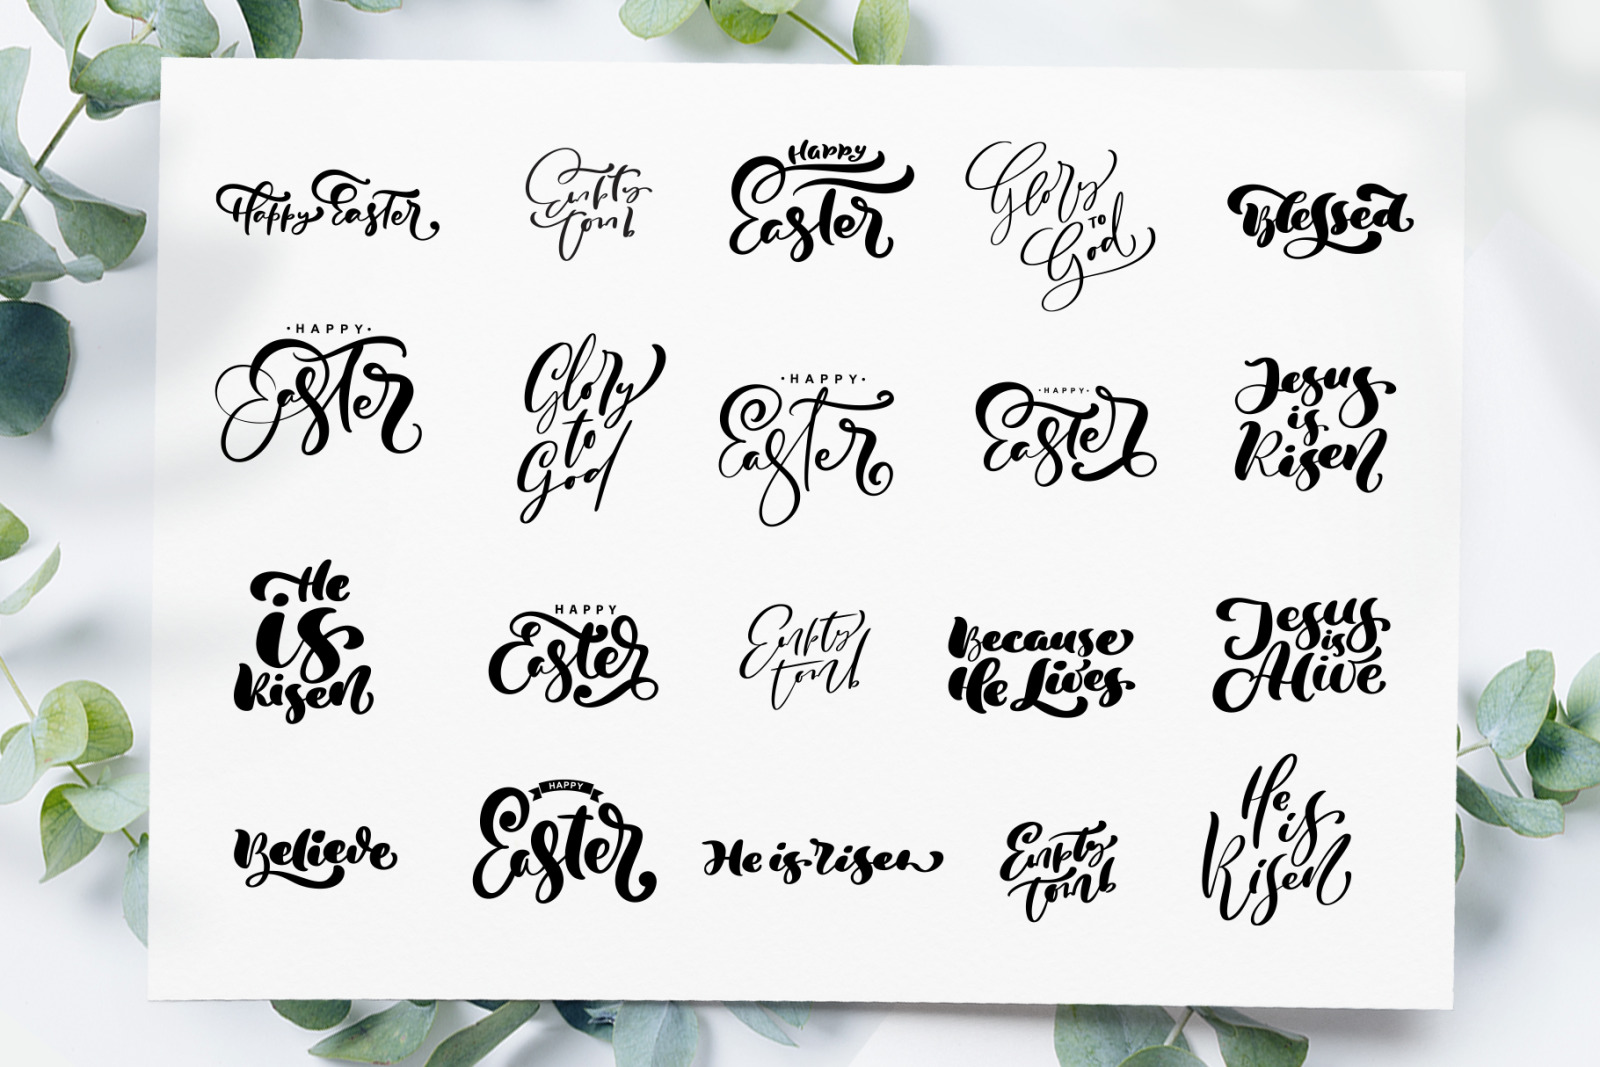 Happy Easter
Empty
tomb
Happy
Easter
Glory
TO
God
Blessed
·HAPPY·
Easter
Glory
to
God
·HAPPY·
Easter
·HAPPY·
Easter
Jesus
is
Risen
He
is
Risen
HAPPY
Easter
Empty
tomb
Because
He Lives
Jesus
is
Alive
Believe
HAPPY
Easter
He is risen
Empty
tomb
He
is
Risen